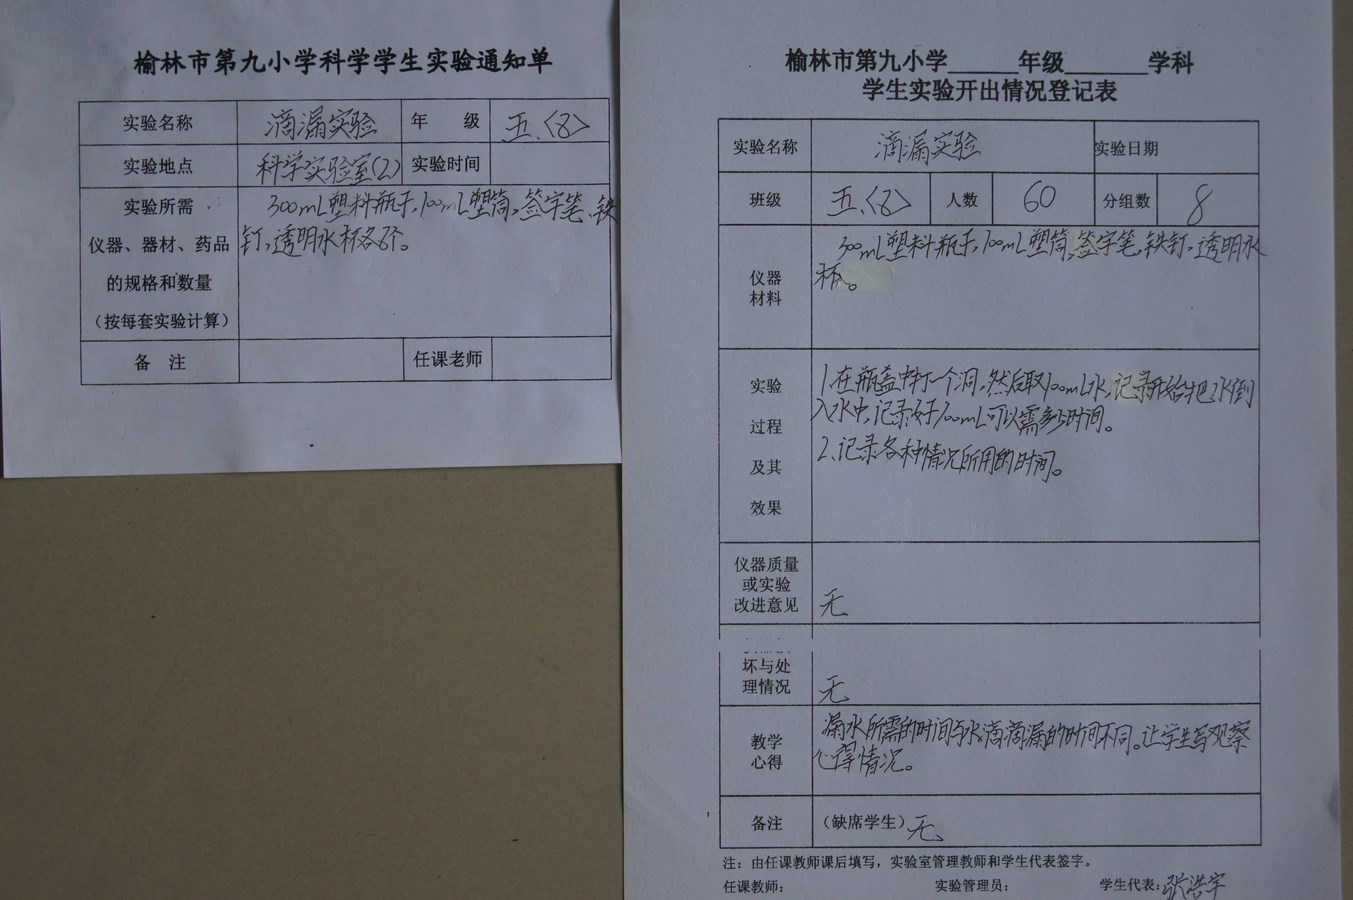 榆林市第九小学科学学生实验通知单
实验名称 滴漏实验 年 级 五.<8>
实验地点 科学实验室(2) 实验时间
实验所需
仪器、器材、药品
的规格和数量
(按每套实验计算)
300mL塑料瓶子,100mL塑筒,签字笔、铁
钉,透明水杯各8个。
备 注 任课老师
榆林市第九小学______年级_______学科
学生实验开出情况登记表
实验名称 滴漏实验 实验日期
班级 五.<8> 人数 60 分组数 8
仪器
材料
300mL塑料瓶子,100mL塑筒,签字笔,铁钉,透明水
杯。
实验
过程
及其
效果
1.在瓶盖中打一个洞,然后取100mL水,记录开始把水倒
入水中,记录好100mL可以需多少时间。
2.记录各种情况所用的时间。
仪器质量
或实验
改进意见
无
坏与处
理情况
无
教学
心得
漏水所需的时间与水滴滴漏的时间不同。让学生写观察
心得情况。
备注 (缺席学生) 无
注:由任课教师课后填写,实验室管理教师和学生代表签字。
任课教师: 实验管理员: 学生代表:张浩宇